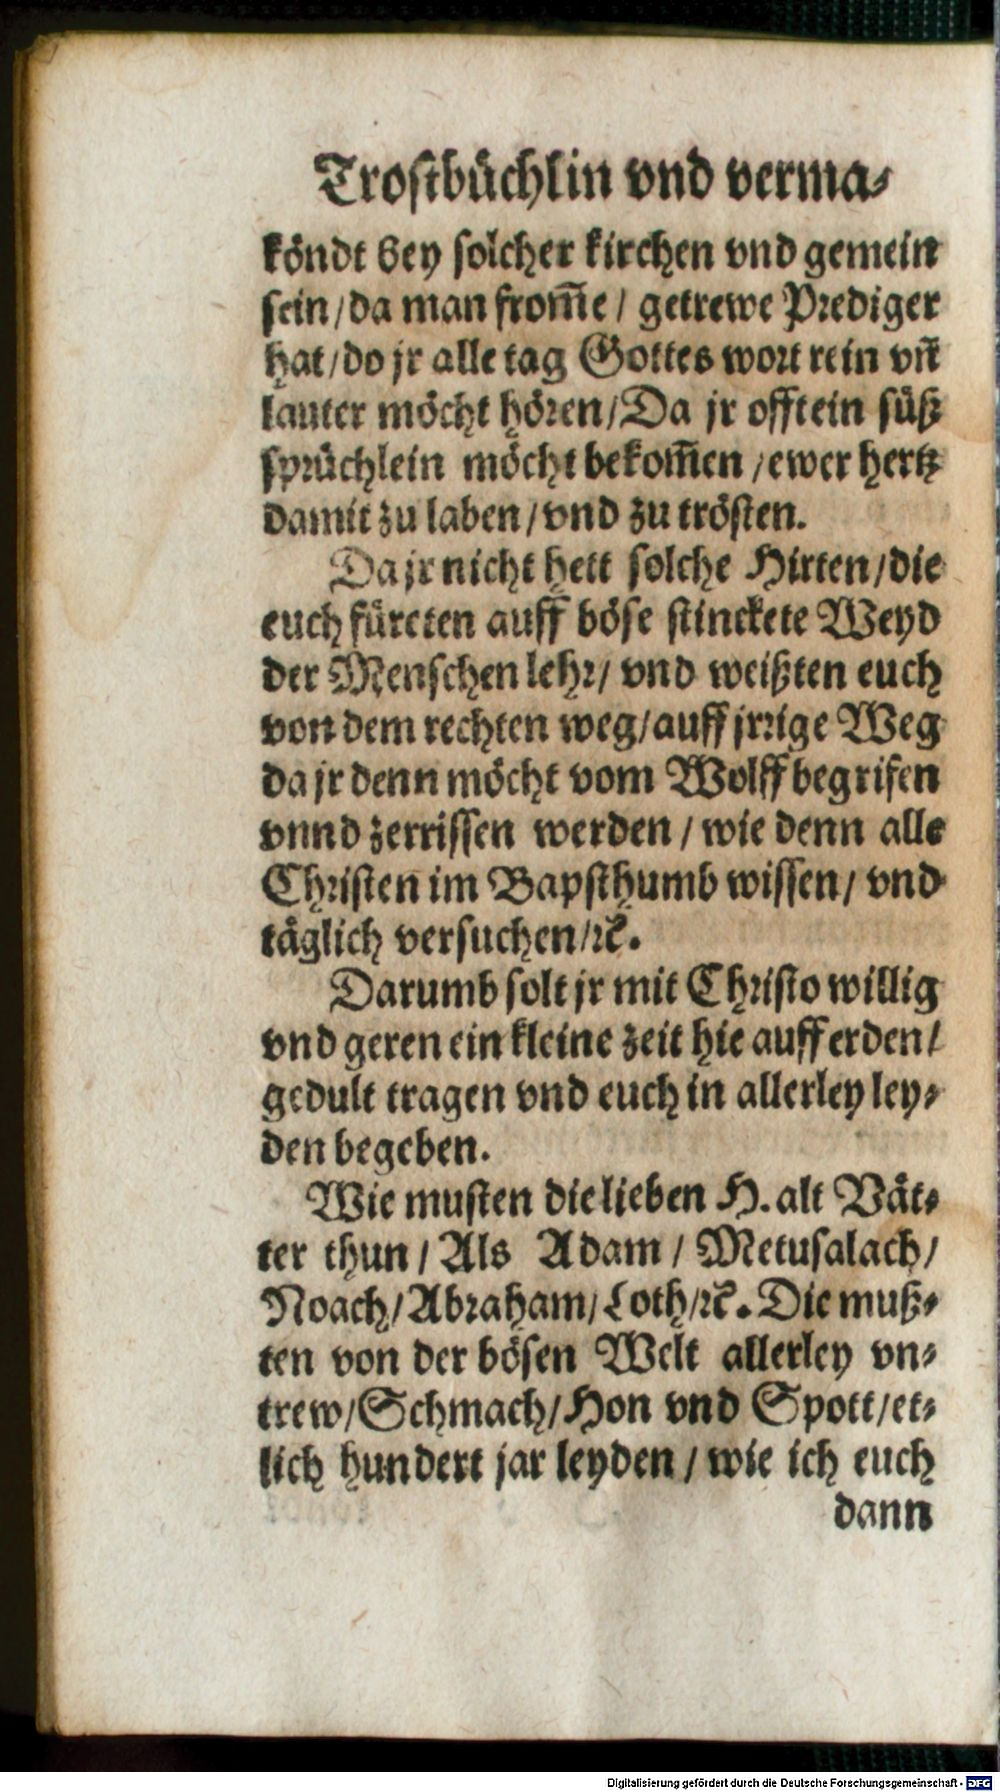 Trostbüchlin vnd verma⸗
köndt bey solcher kirchen vnd gemein
sein/da man from̄e/ getrewe Prediger
hat/do jr alle tag Gottes wort rein vn̄
lauter möcht hören/Da jr offt ein süß
sprüchlein möcht bekom̄en/ewer hertz
damit zu laben/vnd zu trösten.
Da jr nicht hett solche Hirten/die
euch füreten auff böse stinckete Weyd
der Menschen lehr/ vnd weißten euch
von dem rechten weg/auff jrrige Weg
da jr denn möcht vom Wolff begrifen
vnnd zerrissen werden/ wie denn alle
Christen im Bapsthumb wissen/ vnd
täglich versuchen/ꝛc̄.
Darumb solt jr mit Christo willig
vnd geren ein kleine zeit hie auff erden/
gedult tragen vnd euch in allerley ley⸗
den begeben.
Wie musten die lieben H. alt Vät⸗
ter thun/ Als Adam/ Metusalach/
Noach/Abraham/Loth/ꝛc̄. Die muß⸗
ten von der bösen Welt allerley vn⸗
trew/Schmach/Hon vnd Spott/et⸗
lich hundert jar leyden/ wie ich euch
dann
Digitalisierung gefördert durch die Deutsche Forschungsgemeinschaft - DFG